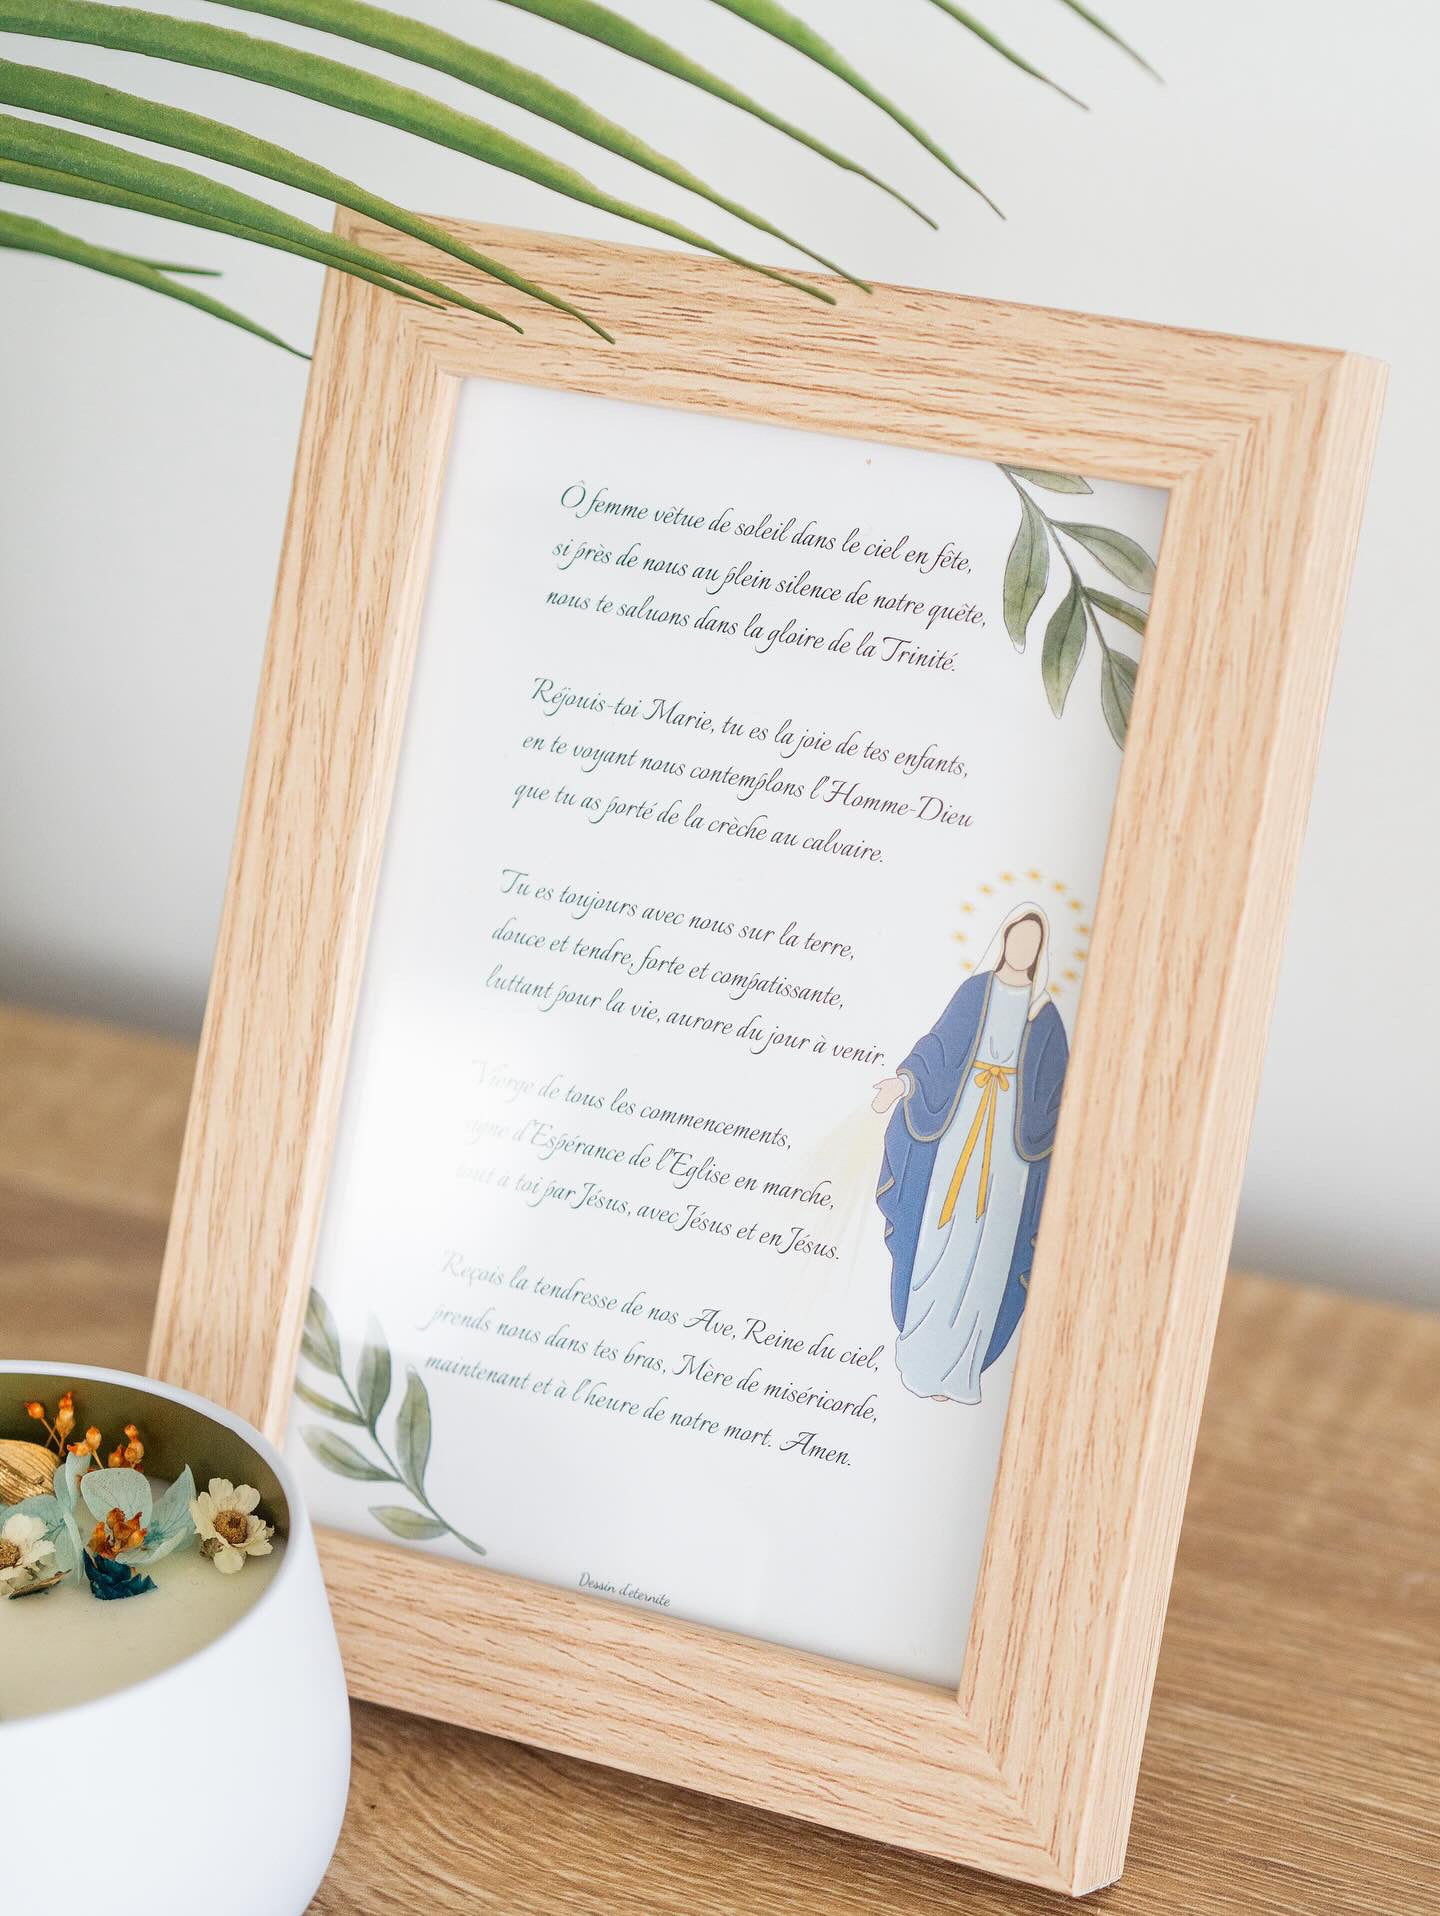 Ô femme vêtue de soleil dans le ciel en fête,
si près de nous au plein silence de notre quête,
nous te saluons dans la gloire de la Trinité.
Réjouis-toi Marie, tu es la joie de tes enfants,
en te voyant nous contemplons l'Homme-Dieu
que tu as porté de la crèche au calvaire.
Tu es toujours avec nous sur la terre,
douce et tendre, forte et compatissante,
luttant pour la vie, aurore du jour à venir.
Vierge de tous les commencements,
signe d'Espérance de l'Eglise en marche,
tout à toi par Jésus, avec Jésus et en Jésus.
Reçois la tendresse de nos Ave, Reine du ciel,
prends nous dans tes bras, Mère de miséricorde,
maintenant et à l'heure de notre mort. Amen.
Dessin d'eternite